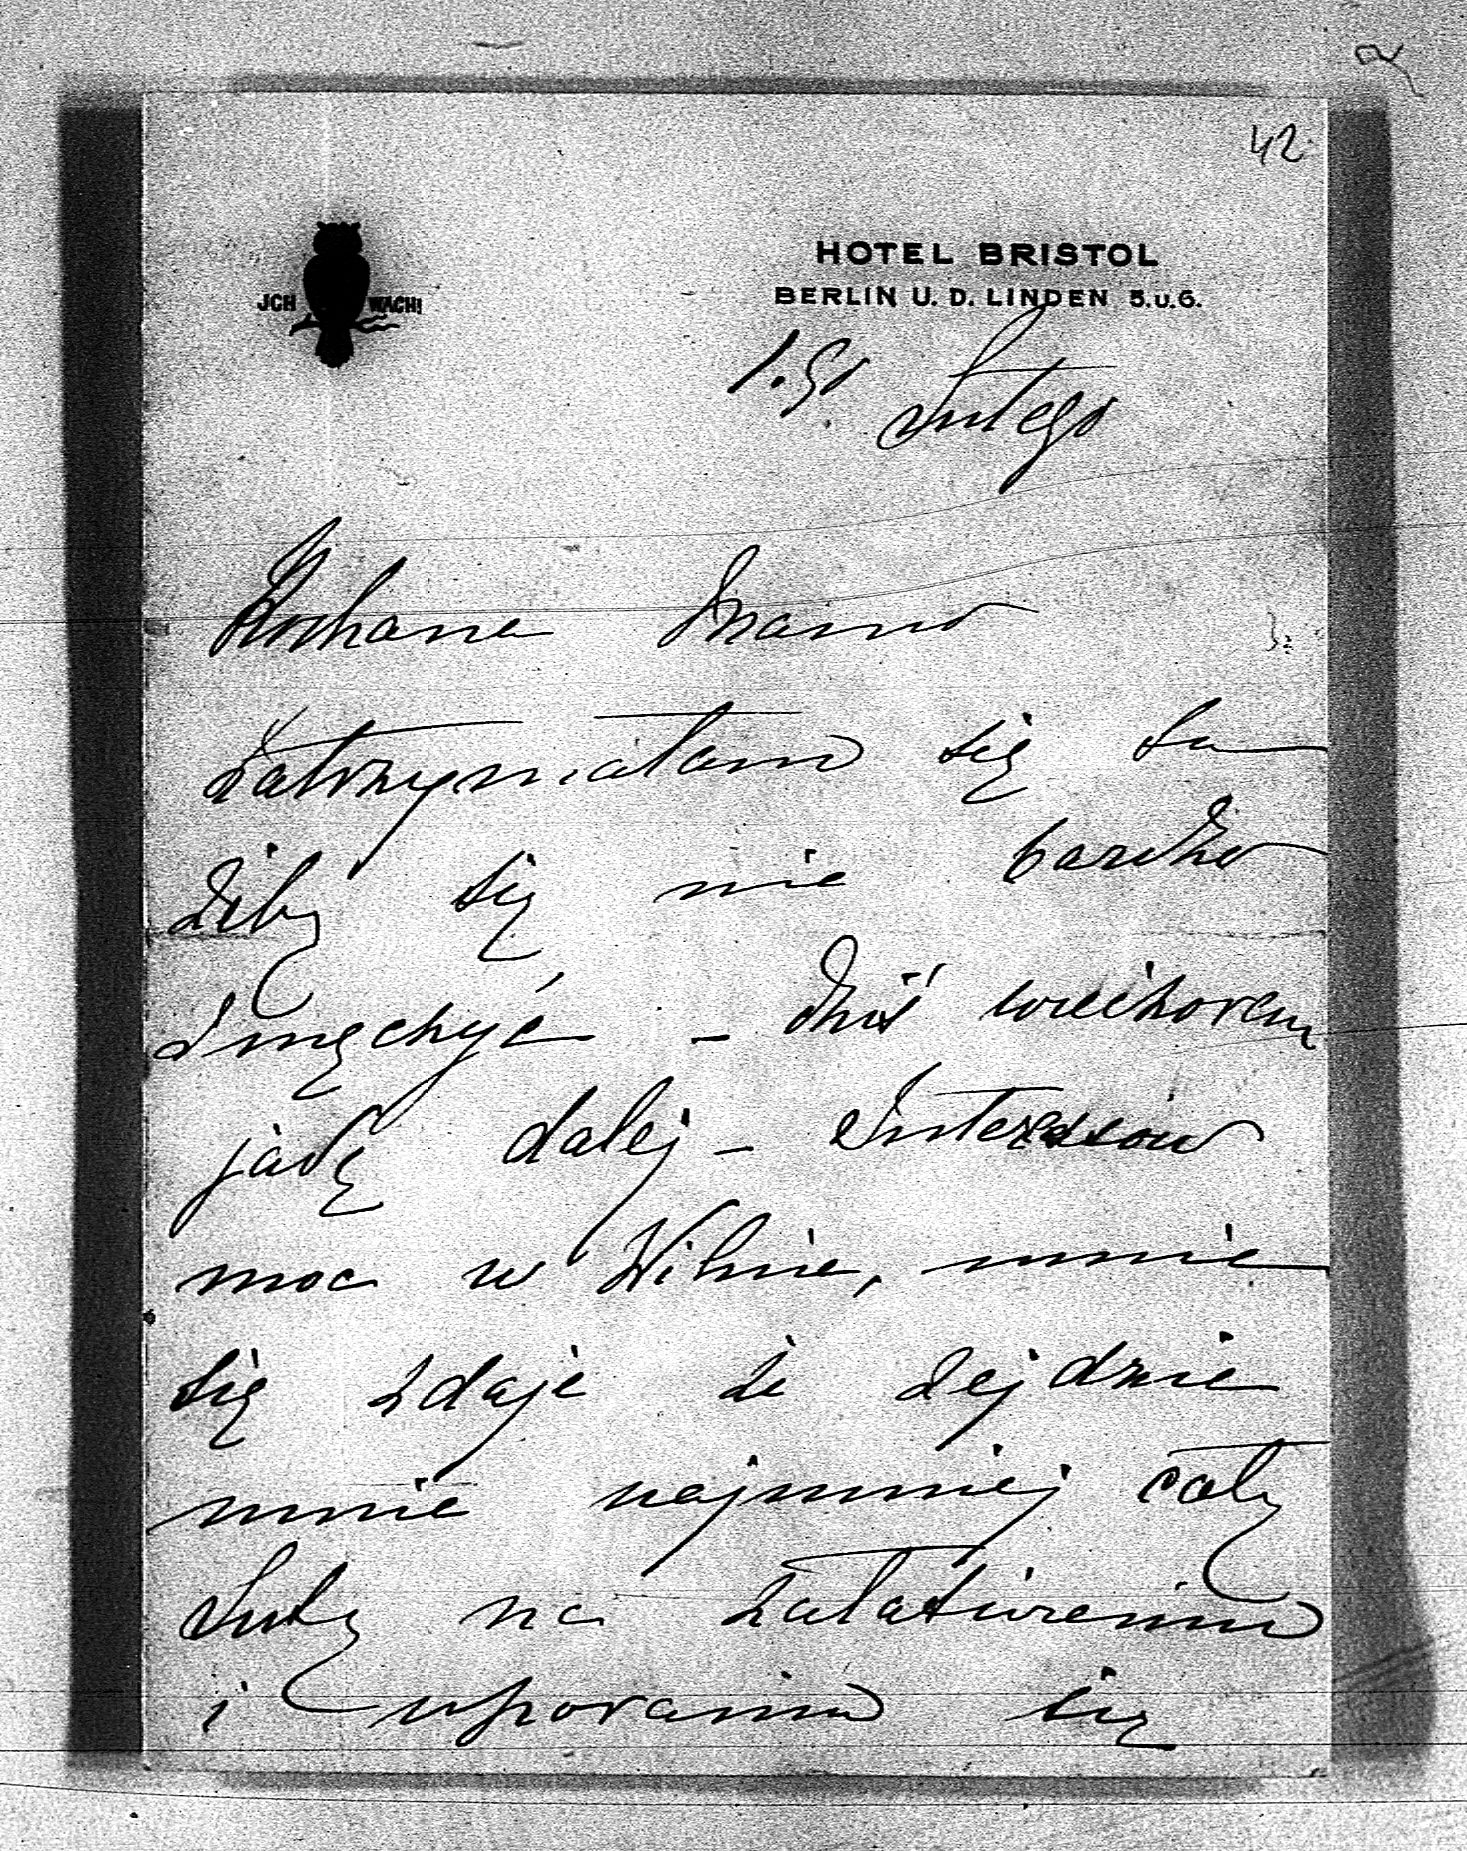 42
HOTEL BRISTOL
BERLIN U. D. LINDEN 5.u.6.
JCH WACH!
1.go Lutego
Kochana Mamo
Zatrzymałam się tu
żeby się nie bardzo
zmęczyć – dziś wieczorem
jadę dalej – Interesów
moc w Wilnie, mnie
się zdaje że zejdzie
mnie najmniej cały
Luty na załatwieniu
i uporaniu się